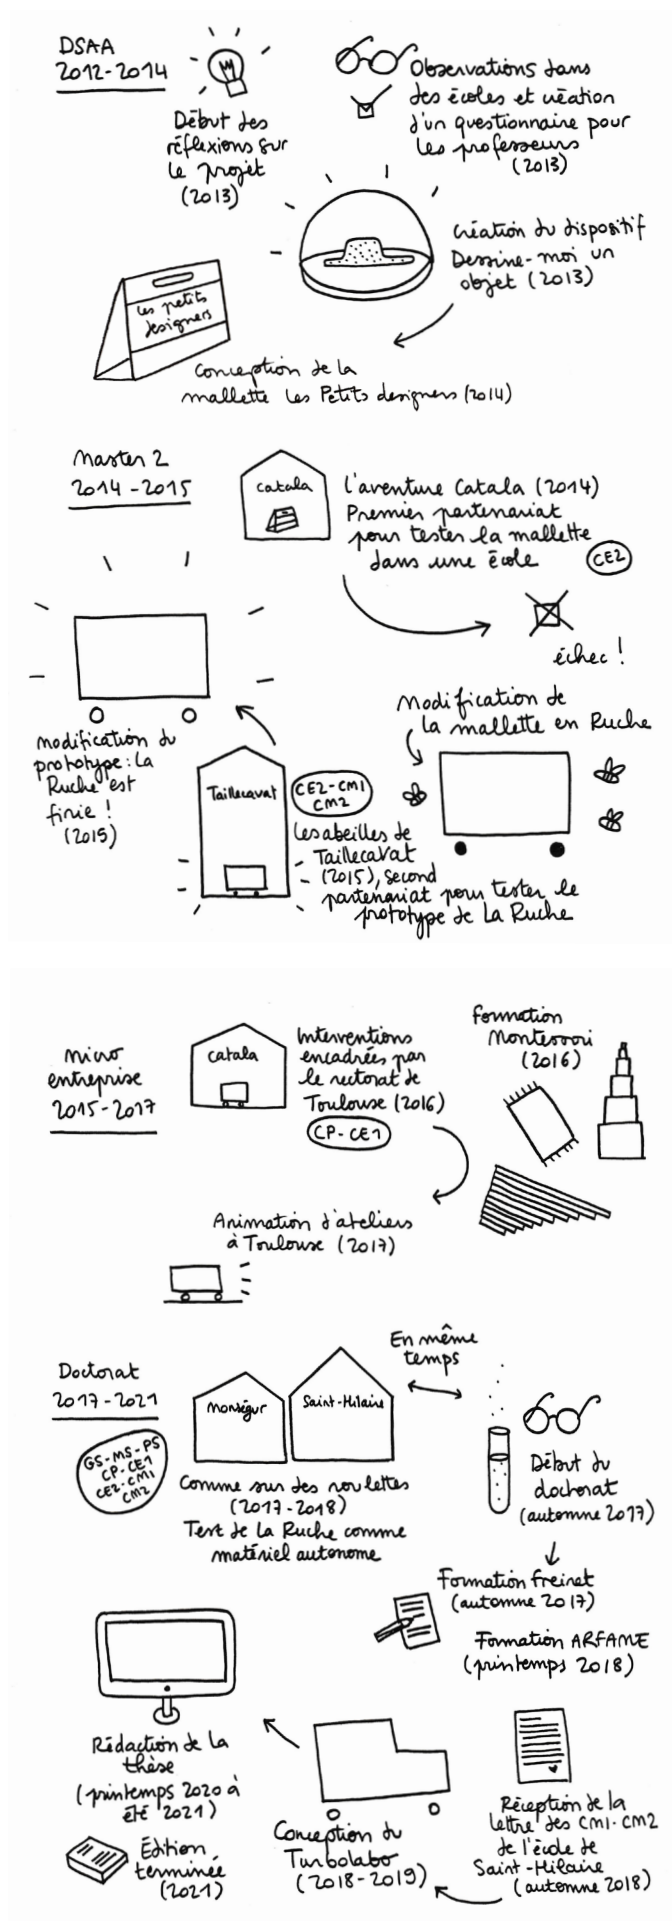 DSAA
2012-2014
Début des
réflexions sur
le projet
(2013)
Observations dans
des écoles et création
d'un questionnaire pour
les professeurs
(2013)
Création du dispositif
Dessine-moi un
objet (2013)
Les petits
designers
Conception de la
mallette Les Petits designers (2014)
Master 2
2014-2015
Catala
L'aventure Catala (2014)
Premier partenariat
pour tester la mallette
dans une école
CE2
échec !
Modification de
la mallette en Ruche
Taillecavat
CE2-CM1
CM2
Les abeilles de
Taillecavat
(2015), second
partenariat pour tester le
prototype de La Ruche
modification du
prototype : La
Ruche est
finie !
(2015)
micro
entreprise
2015-2017
Catala
Interventions
encadrées par
le rectorat de
Toulouse (2016)
CP-CE1
Formation
Montessori
(2016)
Animation d'ateliers
à Toulouse (2017)
Doctorat
2017-2021
GS-MS-PS
CP-CE1
CE2-CM1
CM2
Monségur
Saint-Hilaire
Comme sur des roulettes
(2017-2018)
Test de La Ruche comme
matériel autonome
En même
temps
Début du
doctorat
(automne 2017)
Formation Freinet
(automne 2017)
Formation ARFAME
(printemps 2018)
Réception de la
lettre des CM1-CM2
de l'école de
Saint-Hilaire
(automne 2018)
Conception du
Turbolabo
(2018-2019)
Rédaction de la
thèse
(printemps 2020 à
été 2021)
Édition
terminée
(2021)